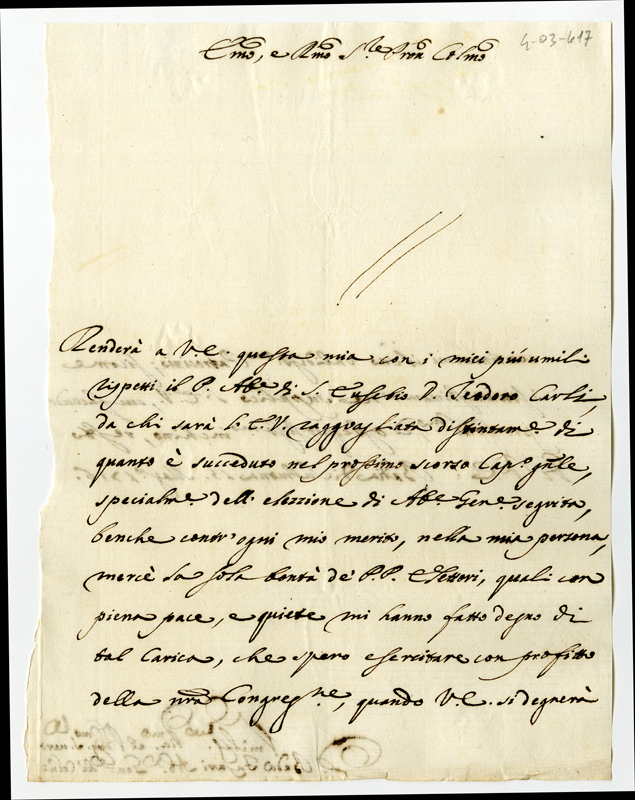 4-03-417
Emo, e Rmo Sre. Pron Colmo
Renderà a V.E. questa mia con i miei più umili
rispetti il P. Abe. di S. Eusebio D. Teodoro Carli,
da chi sarà l'E.V. ragguagliata distintame. di
quanto è succeduto nel prossimo scorso Capo. gnle,
specialme. dell' elezzione di Abe. Gene. seguita,
benche contr' ogni mio merito, nella mia persona,
mercè la sola bontà de' P.P. Elettori, quali con
piena pace, e quiete mi hanno fatto degno di
tal Carica, che spero esercitare con profitto
della nra Congregne, quando V.E. si degnerà